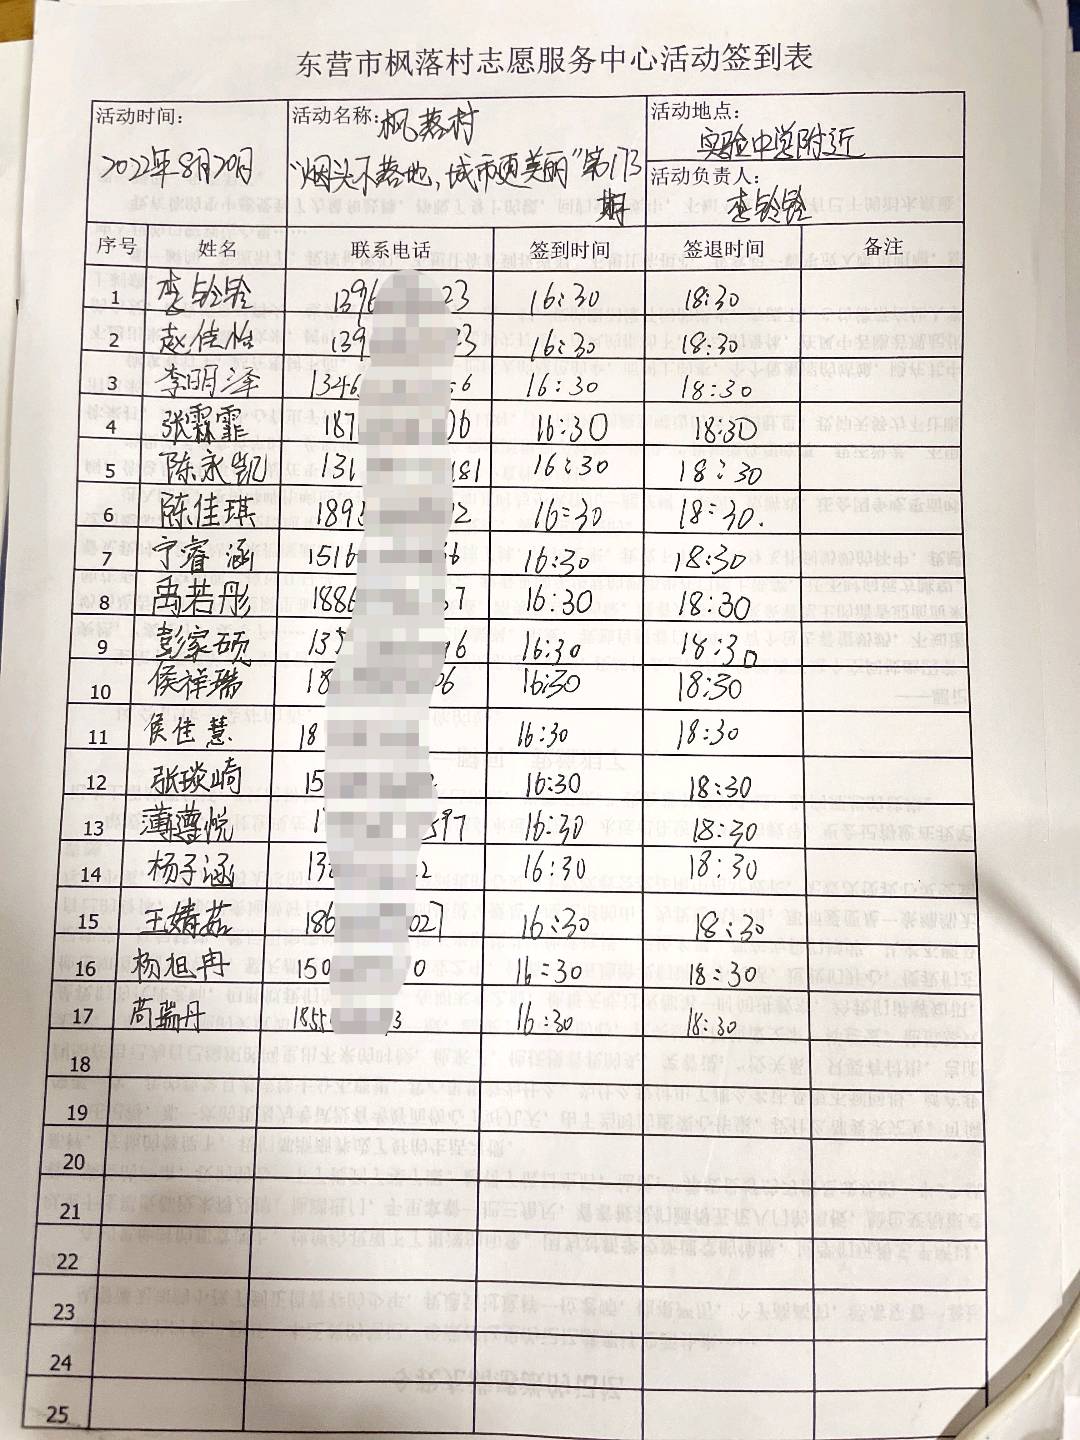 东营市枫落村志愿服务中心活动签到表
活动时间: 活动名称:枫落村 活动地点:
2022年8月20日 "烟头不落地,城市更美丽"第173期 实验中学附近
活动负责人:
李铃铃
序号 姓名 联系电话 签到时间 签退时间 备注
1 李铃铃 1396 23 16:30 18:30
2 赵佳怡 139 23 16:30 18:30
3 李明泽 1346 6 16:30 18:30
4 张霖霏 187 06 16:30 18:30
5 陈永凯 131 181 16:30 18:30
6 陈佳琪 189 2 16:30 18:30.
7 宁睿涵 1516 66 16:30 18:30
8 禹若彤 1886 7 16:30 18:30
9 彭家硕 135 96 16:30 18:30
10 侯祥瑞 18 06 16:30 18:30
11 侯佳慧 18 16:30 18:30
12 张琰崎 15 16:30 18:30
13 薄遵悦 1 597 16:30 18:30
14 杨子涵 13 2 16:30 18:30
15 王婧茹 186 027 16:30 18:30
16 杨旭冉 150 0 16:30 18:30
17 瑞丹 1855 3 16:30 18:30
18
19
20
21
22
23
24
25